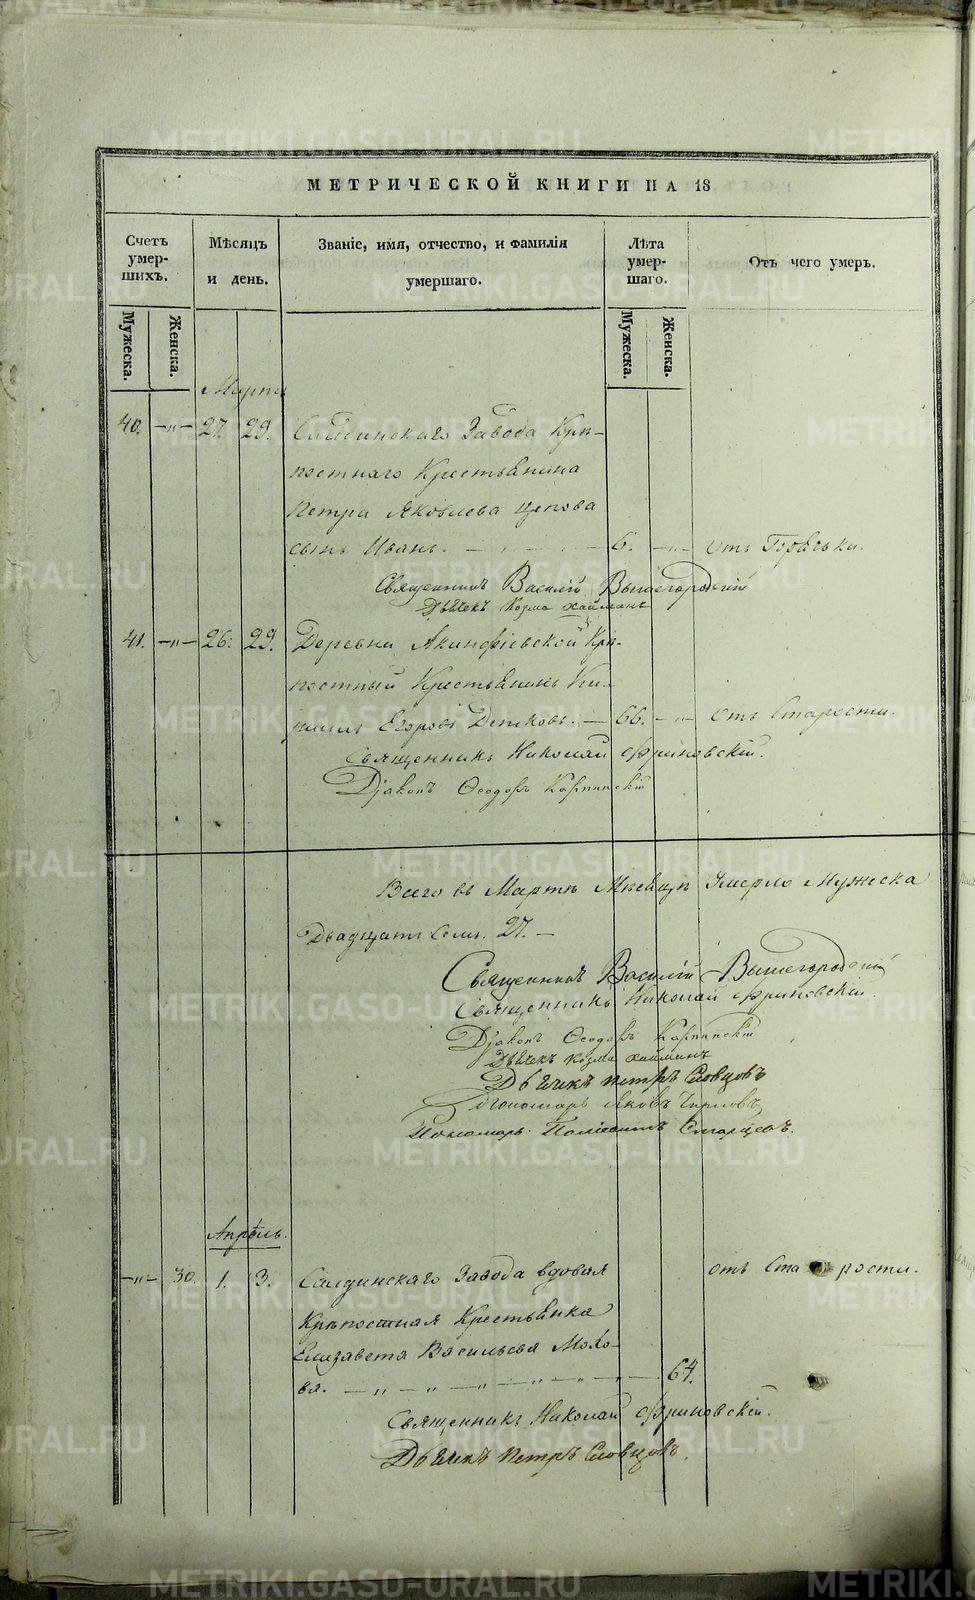 МЕТРИЧЕСКОЙ КНИГИ НА 18
Счетъ умер- шихъ.
Мѣсяцъ и день.
Званіе, имя, отчество, и фамилія умершаго.
Лѣта умер- шаго.
Отъ чего умеръ.
Мужеска. Женска. Мужеска. Женска.
Мартъ
40. —„— 27. 29. Салдинскаго Завода Крѣ-
постнаго Крестьянина
Петра Яковлева Цепова
сынъ Иванъ. 6. —„— отъ Горячки.
Священникъ Василій Вышегородскій
Дьячекъ Козма
41. —„— 26. 29. Деревни Акинфіевской Крѣ-
постный Крестьянинъ Ки-
рилъ Егоровъ — 66. —„— отъ Старости.
Священникъ Николай Фриновскій.
Діаконъ Ѳеодоръ Карпинскій
Всего въ Мартѣ Мѣсяцѣ Умерло Мужеска
Двадцать Семь. 27. —
Священникъ Василій Вышегородскій
Священникъ Николай Фриновскій.
Діаконъ Ѳеодоръ Карпинскій
Дьячекъ Козма
Дьячекъ Петръ Словцовъ
Пономарь Яковъ
Пономарь Старцевъ.
Апрѣль.
—„— 30. 1. 3. Салдинскаго Завода вдовая отъ Старости.
Крѣпостная Крестьянка
Елизавета Васильева Мохо-
ва. — „ — „ — „ — „ — „ — 64.
Священникъ Николай Фриновскій.
Дьячекъ Петръ Словцовъ.
METRIKI.GASO-URAL.RU